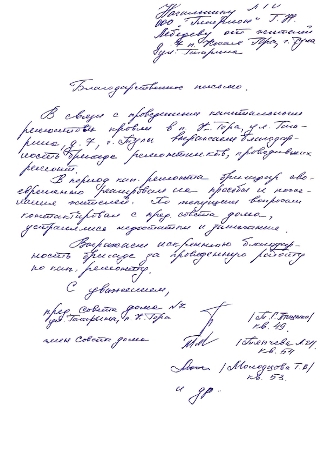 Начальнику
ООО
от жителей
п. Косая Гора, г. Тула
ул. Гагарина
Благодарственное письмо.
В связи с проведением капитального
ремонта кровли в п. К-Гора, ул. Гага-
рина, д. 7, г. Тулы выражаем благодар-
ность бригаде ремонтников, проводившей
ремонт.
В период кап. ремонта бригадир сво-
евременно реагировал на просьбы и поже-
лания жителей. По текущим вопросам
контактировал с пред. совета дома,
устранялись недостатки и замечания.
Выражаем искреннюю благодар-
ность бригаде за проведенную работу
по кап. ремонту.
С уважением,
пред. совета дома №7
ул. Гагарина, п. К. Гора
кв. 49.
члены совета дома
кв. 54
кв. 53.
и др.